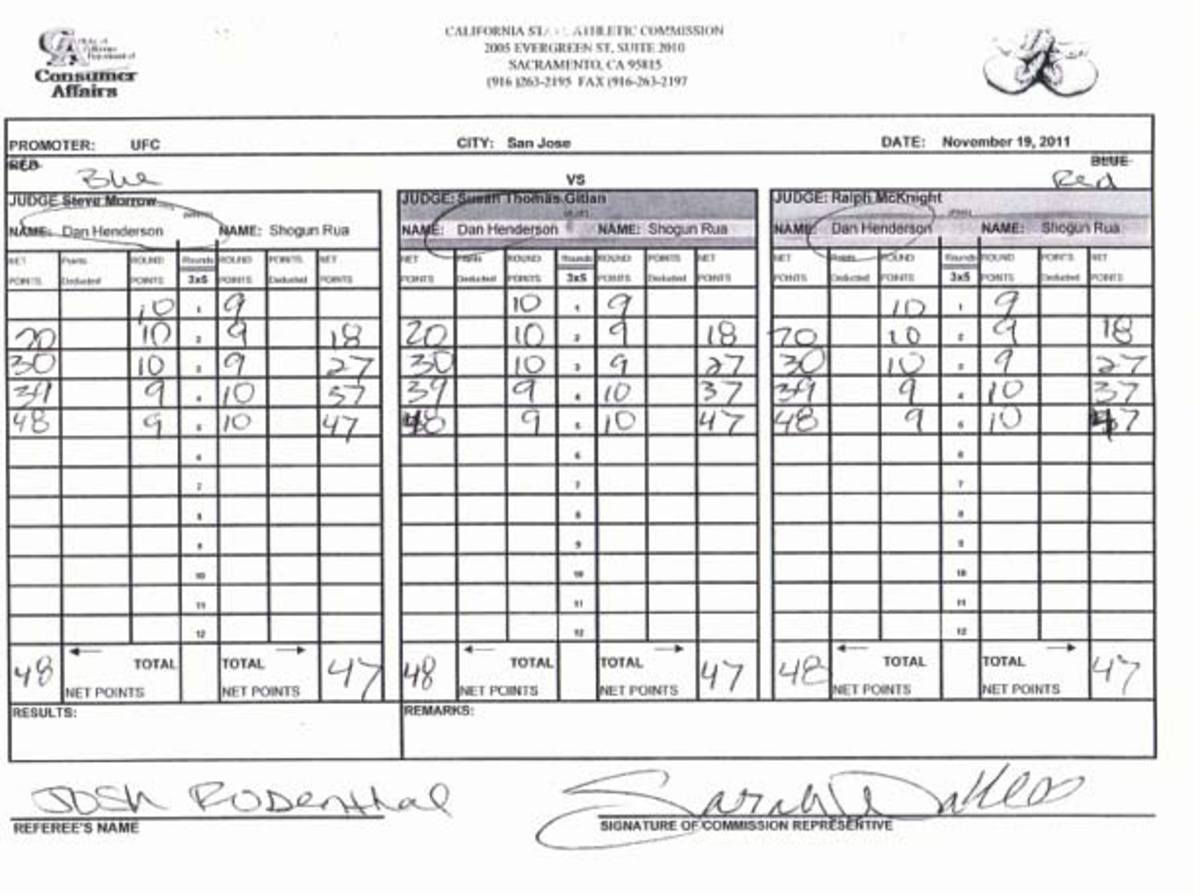 Consumer
Affairs
CALIFORNIA STATE ATHLETIC COMMISSION
2005 EVERGREEN ST, SUITE 2010
SACRAMENTO, CA 95815
(916 )263-2195 FAX (916-263-2197
PROMOTER: UFC CITY: San Jose DATE: November 19, 2011
RED BLUE
Blue VS Red
JUDGE Steve Morrow JUDGE: Susan Thomas Gitlan JUDGE: Ralph McKnight
NAME: Dan Henderson NAME: Shogun Rua NAME: Dan Henderson NAME: Shogun Rua NAME: Dan Henderson NAME: Shogun Rua
NET Points ROUND Rounds ROUND POINTS NET NET Points ROUND Rounds ROUND POINTS NET NET Points ROUND Rounds ROUND POINTS NET
POINTS Deducted POINTS 3x5 POINTS Deducted POINTS POINTS Deducted POINTS 3x5 POINTS Deducted POINTS POINTS Deducted POINTS 3x5 POINTS Deducted POINTS
10 1 9 10 1 9 10 1 9
20 10 2 9 18 20 10 2 9 18 20 10 2 9 18
30 10 3 9 27 30 10 3 9 27 30 10 3 9 27
39 9 4 10 37 39 9 4 10 37 39 9 4 10 37
48 9 5 10 47 48 9 5 10 47 48 9 5 10 47
6 6 6
7 7 7
8 8 8
9 9 9
10 10 10
11 11 11
12 12 12
48 TOTAL TOTAL 47 48 TOTAL TOTAL 47 48 TOTAL TOTAL 47
NET POINTS NET POINTS NET POINTS NET POINTS NET POINTS NET POINTS
RESULTS: REMARKS:
Josh Rosenthal Sarah
REFEREE'S NAME SIGNATURE OF COMMISSION REPRESENTIVE